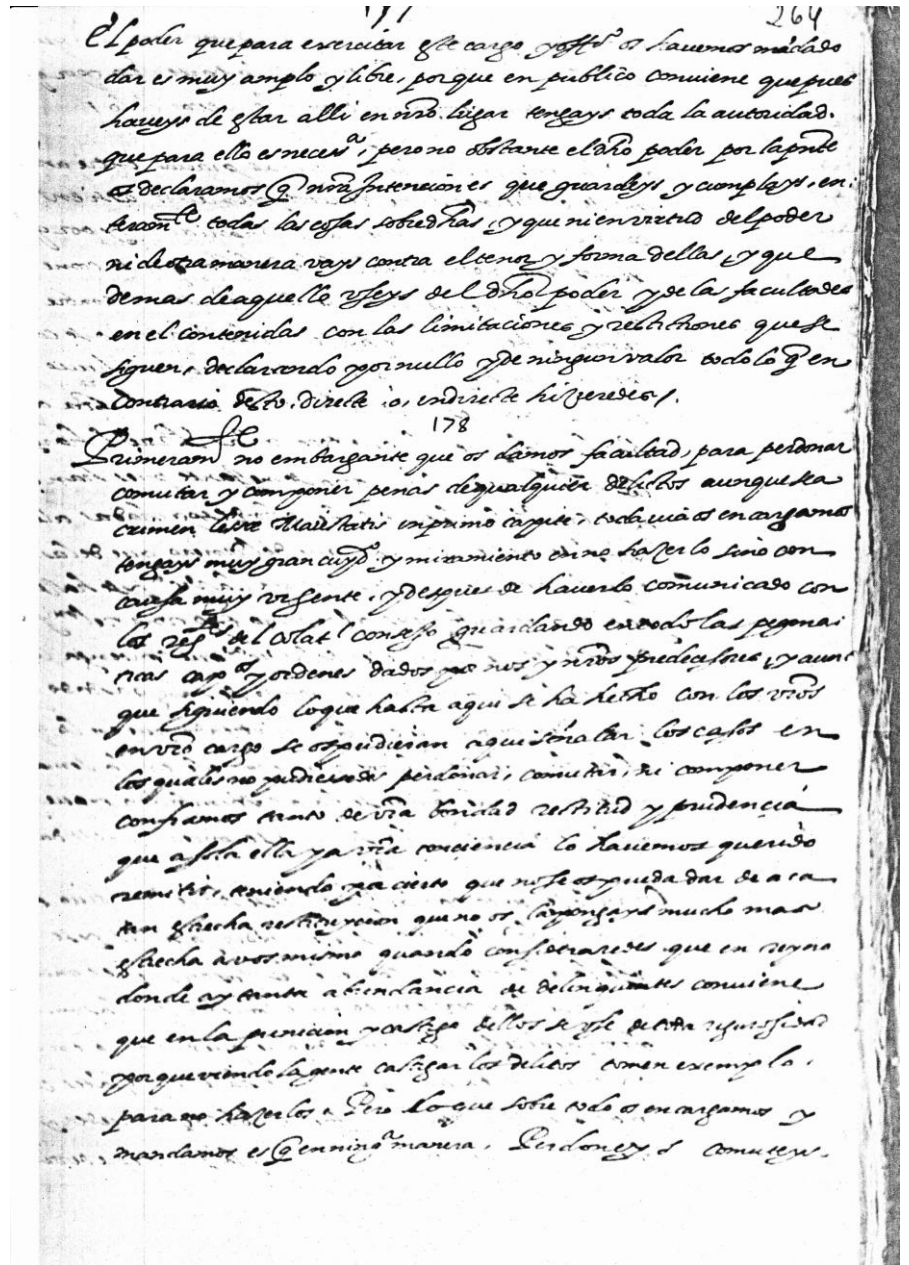 177 264
El poder que para exercitar este cargo y offi.º os havemos mãdado
dar es muy amplo y libre, porque en publico conviene que pues
haveys de estar alli en nrõ lugar tengays toda la autoridad.
que para ello es neces.ª, pero no obstante el dhõ poder por la pnte
os declaramos q̃ nrã Intencion es que guardeys y cumplays, en
teram.te todas las cosas sobredhas, y que ni en virtud del poder
ni de otra manera vays contra el tenor y forma dellas, y que
demas de aquello vseys del dhõ poder y de las facultades
en el contenidas con las limitaciones y restictiones que se
siguen, declarando por nullo y de ningun valor todo lo q̃ en
Contrario desto, directe, o, indirecte hizieredes /.
178
Primeram.te no embargante que os damos facultad, para perdonar
comutar y componer penas de qualquier delictos aunque sea
crimen lese Maiestatis in primo capite, todavia os encargamos
tengays muy gran cuyd.º y miramiento en no hazerlo sino con
causa muy vrgente, y despues de haverlo comunicado con
los reg.tes del colat.l consejo guardando en todo las pragma
ticas cap.os y ordenes dados por nos y nrõs predecessores, y aun
que siguiendo lo que hasta aqui se ha hecho con los vrõs
en vrõ cargo se os pudieran aqui señalar los casos en
los quales no pudiesedes perdonar, comutar, ni componer
confiamos tanto de vrã bondad rectitud y prudencia
que a sola ella y a vrã conciencia lo havemos querido
remitir, teniendo por cierto que no se os pueda dar de aca
tan estrecha restriction que no os la pongays mucho mas
estrecha a vos mismo quando consideraredes que en reyno
donde ay tanta abundancia de delinquentes conviene
que en la punicion y castigo dellos se vse de toda rigurosidad
porque viendo la gente castigar los delitos tomen exemplo
para no hazerlos. Pero lo que sobre todo os encargamos y
mandamos es q̃ en ning.ª manera. Perdoneys o comuteys.